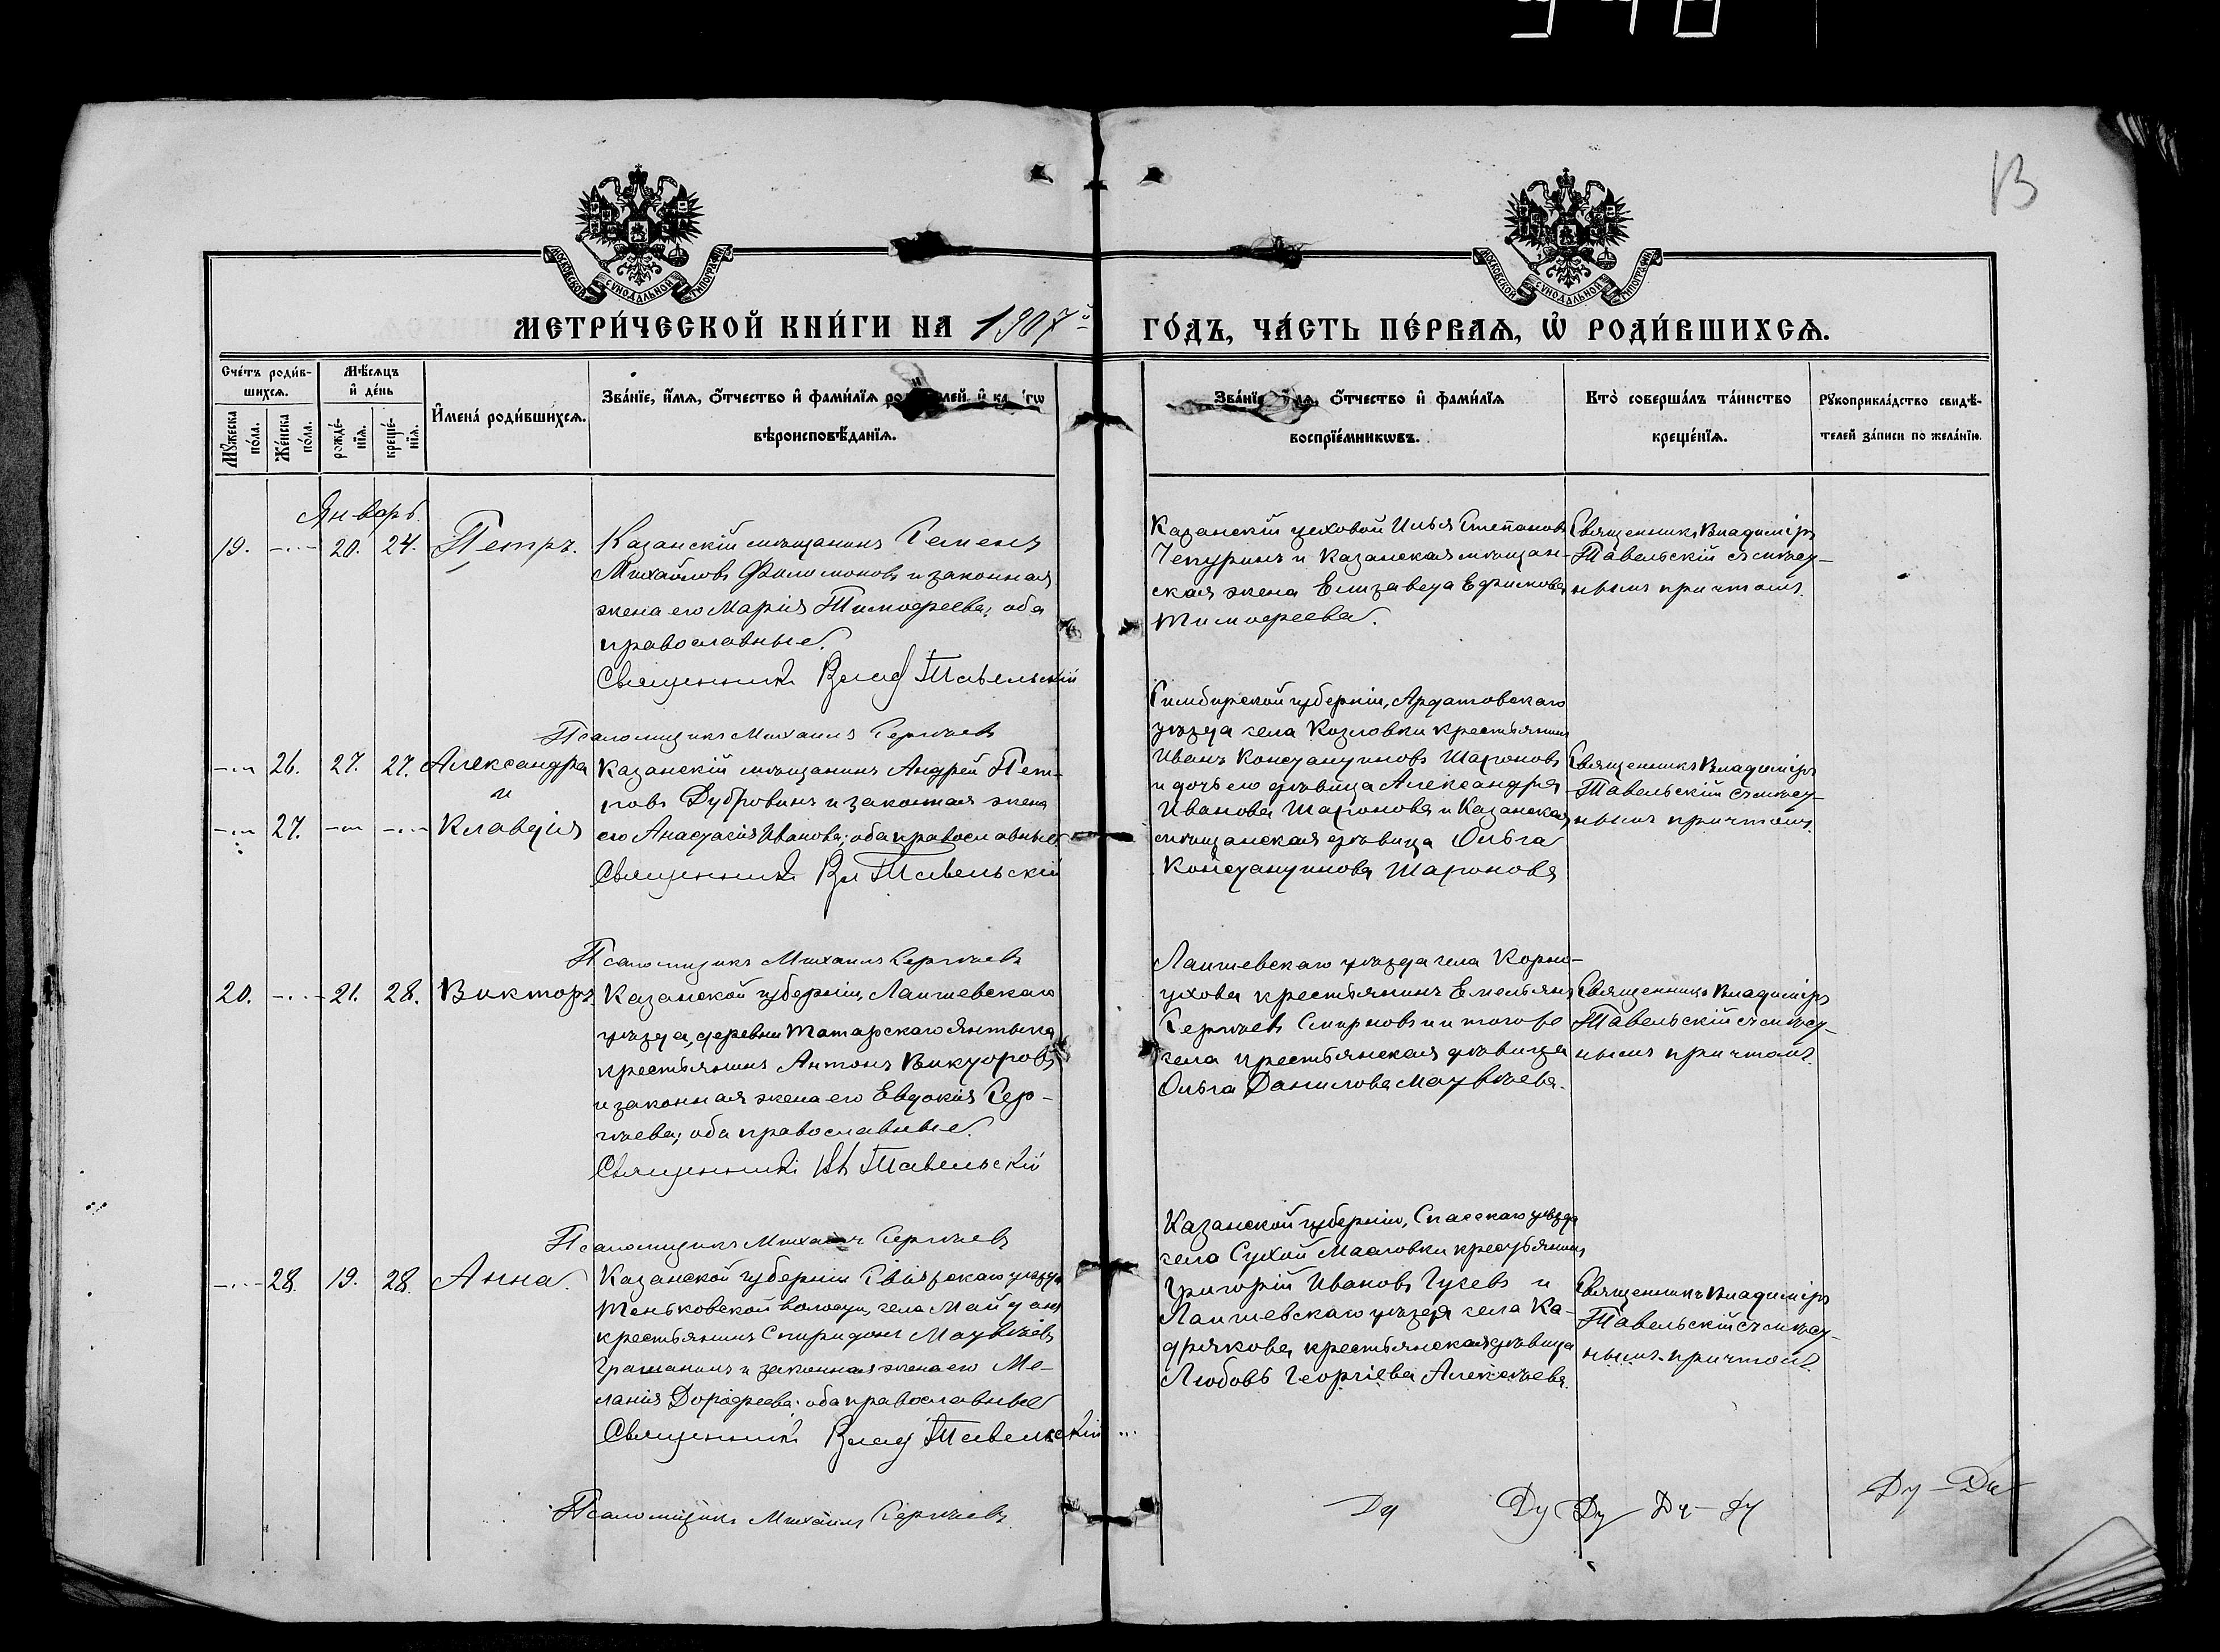 13
МОСКОВСКОЙ СѴНОДАЛЬНОЙ ТИПОГРАФІИ
МОСКОВСКОЙ СѴНОДАЛЬНОЙ ТИПОГРАФІИ
МЕТРИ́ЧЕСКОЙ КНИ́ГИ НА 1907й ГО́ДЪ, ЧА́СТЬ ПЕ́РВАѦ, Ѡ҆ РОДИ́ВШИХСѦ.
Сче́тъ роди́в-
шихсѧ.
Мꙋ́жеска по́ла.
Же́нска по́ла.
Мѣ́сѧцъ
и҆ де́нь
рожде́-
нїѧ.
креще́-
нїѧ.
И҆мена̀ роди́вшихсѧ.
Зва́нїе, и҆́мѧ, ѻ҆́тчество и҆ фами́лїѧ и҆
вѣроисповѣ́данїѧ.
Зва́нїе ѻ҆́тчество и҆ фами́лїѧ
воспрїе́мникѡвъ.
Кто̀ соверша́лъ та́инство
креще́нїѧ.
Рꙋкоприкла́дство свидѣ́-
телей за́писи по жела́нїю.
Январь.
19. — 20. 24. Петръ.
Казанскій мѣщанинъ Семенъ
Михайловъ Филимоновъ и законная
жена его Марія Тимофеева; оба
православные.
Священникъ Влад Тавельскій
Псаломщикъ Михаилъ Сергѣевъ
Казанскій цеховой Илья Степановъ
Чепуринъ и Казанская мѣщан-
ская жена Елизавета Ефимова
Тимофеева.
Священникъ Владиміръ
Тавельскій съ мѣст-
нымъ причтомъ.
— 26. 27. 27. Александра
и
— 27. — — Клавдія
Казанскій мѣщанинъ Андрей Пет-
ровъ Дубровинъ и законная жена
его Анастасія Иванова; оба православные
Священникъ Вл Тавельскій
Псаломщикъ Михаилъ Сергѣевъ
Симбирской губерніи, Ардатовскаго
уѣзда села Козловки крестьянинъ
Иванъ Константиновъ Шароновъ
и дочь его дѣвица Александра
Иванова Шаронова и Казанская
мѣщанская дѣвица Ольга
Константинова Шаронова
Священникъ Владиміръ
Тавельскій съ мѣст-
нымъ причтомъ.
20. — 21. 28. Викторъ.
Казанской губерніи, Лаишевскаго
уѣзда, деревни Татарскаго Янтыка
крестьянинъ Антонъ Викторовъ
и законная жена его Евдокія Сер-
гѣева; оба православные.
Священникъ Вл Тавельскій
Псаломщикъ Михаилъ Сергѣевъ
Лаишевскаго уѣзда села Корно-
ухова крестьянинъ Емельянъ
Сергѣевъ Смирновъ и тогоже
села крестьянская дѣвица
Ольга Данилова Матвѣева.
Священникъ Владиміръ
Тавельскій съ мѣст-
нымъ причтомъ.
— 28. 19. 28. Анна.
Казанской губерніи Свіяжскаго уѣзда
Теньковской волости, села Майдана
крестьянинъ Спиридонъ Матвѣевъ
и законная жена его Ме-
ланія Дорофеева; оба православные
Священникъ Влад Тавельскій
Псаломщикъ Михаилъ Сергѣевъ
Казанской губерніи, Спасскаго уѣзда
села Сухой крестьянинъ
Григорій Ивановъ Гусевъ и
Лаишевскаго уѣзда села Ка-
дрякова крестьянская дѣвица
Любовь Георгіева Алексѣева.
Священникъ Владиміръ
Тавельскій съ мѣст-
нымъ причтомъ.